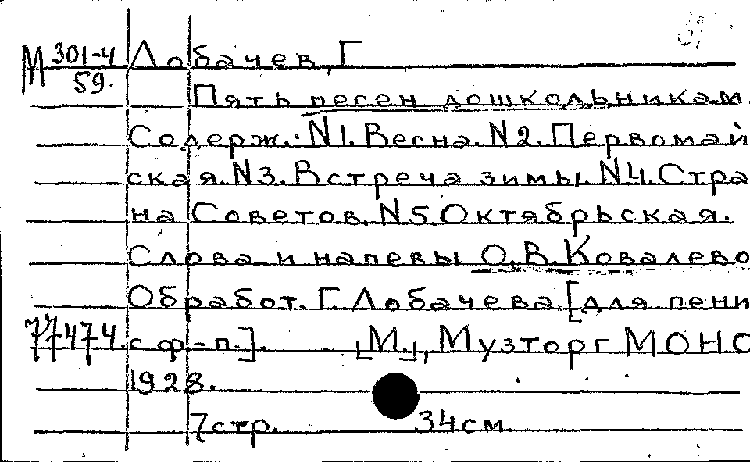 М 301-4 Лобачев, Г
59.
Пять песен дошкольникам.
Содерж.: N1. Весна. N2. Первомай
ская. N3. Встреча зимы. N4. Стра
на Советов. N5. Октябрьская.
Слова и напевы О.В. Ковалево
Обработ. Г. Лобачева [для пени
77474. с ф-п.]. [М.], Музторг МОНО
1928.
7 стр. 34 см.